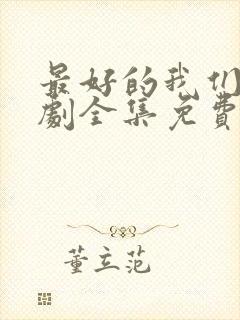 最好的我们
劇全集免費
董立范